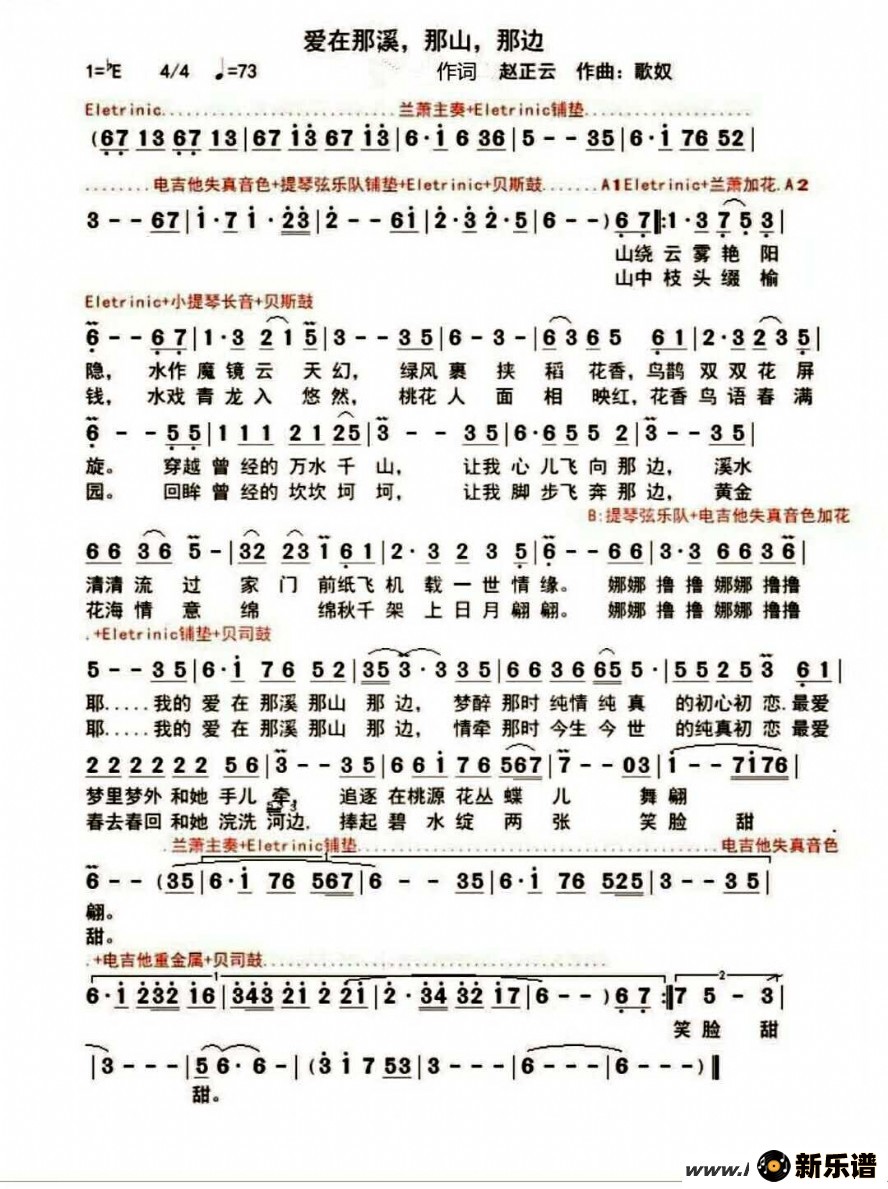 爱在那溪，那山，那边
1=♭E 4/4 ♩=73 作词 赵正云 作曲：歌奴
Eletrinic...........................兰萧主奏+Eletrinic铺垫.................
(67 13 67 13|67 i3 67 i3|6·i 6 36|5 - - 35|6·i 76 52|
........电吉他失真音色+提琴弦乐队铺垫+Eletrinic+贝斯鼓.......A1Eletrinic+兰萧加花.A2
3 - - 67|i·7 i·23|2 - - 6i|2·3 2·5|6 - - )6 7‖:1·3 7 5 3|
山绕 云 雾 艳 阳
山中 枝 头 缀 榆
Eletrinic+小提琴长音+贝斯鼓
6 - - 6 7|1·3 2 1 5|3 - - 3 5|6 - 3 -|6 3 6 5 6 1|2·3 2 3 5|
隐， 水作 魔 镜 云 天 幻， 绿风 裹 挟 稻 花香，鸟鹊 双 双 花 屏
钱， 水戏 青 龙 入 悠 然， 桃花 人 面 相 映红，花香 鸟 语 春 满
6 - - 5 5|1 1 1 2 1 2 5|3 - - 3 5|6·6 5 5 2|3 - - 3 5|
旋。 穿越 曾 经的 万水 千 山， 让我 心 儿飞 向 那 边， 溪水
园。 回眸 曾 经的 坎坎 坷 坷， 让我 脚 步飞 奔 那 边， 黄金
B:提琴弦乐队+电吉他失真音色加花
6 6 3 6 5 -|32 23 1 6 1|2·3 2 3 5|6 - - 6 6|3·3 6 6 3 6|
清清 流 过 家 门 前纸飞 机 载 一 世 情 缘。 娜娜 撸 撸 娜娜 撸撸
花海 情 意 绵 绵秋千 架 上 日 月 翩 翩。 娜娜 撸 撸 娜娜 撸撸
.+Eletrinic铺垫+贝司鼓
5 - - 3 5|6·i 7 6 5 2|35 3·3 3 5|6 6 3 6 65 5·|5 5 2 5 3 6 1|
耶.....我的 爱 在 那溪 那山 那 边， 梦醉 那时 纯情 纯 真 的初心初 恋.最爱
耶.....我的 爱 在 那溪 那山 那 边， 情牵 那时 今生 今 世 的纯真初 恋 最爱
2 2 2 2 2 2 5 6|3 - - 3 5|6 6 i 7 6 567|7 - - 03|i - - 7i76|
梦里梦外 和她 手儿 牵， 追逐 在桃源 花丛 蝶 儿 舞 翩
春去春回 和她 浣洗 河边. 捧起 碧 水 绽 两 张 笑 脸 甜
.兰萧主奏+Eletrinic铺垫....................................电吉他失真音色
1
6 - - (35|6·i 76 567|6 - - 35|6·i 76 525|3 - - 3 5|
翩。
甜。
.+电吉他重金属+贝司鼓.......................................
1 2
6·i 232 i6|343 2i 2 2i|2·34 32 i7|6 - - )6 7:‖7 5 - 3|
笑 脸 甜
|3 - - -|5 6· 6 -|(3 i 7 53|3 - - -|6 - - -|6 - - -)‖
甜。
新乐谱